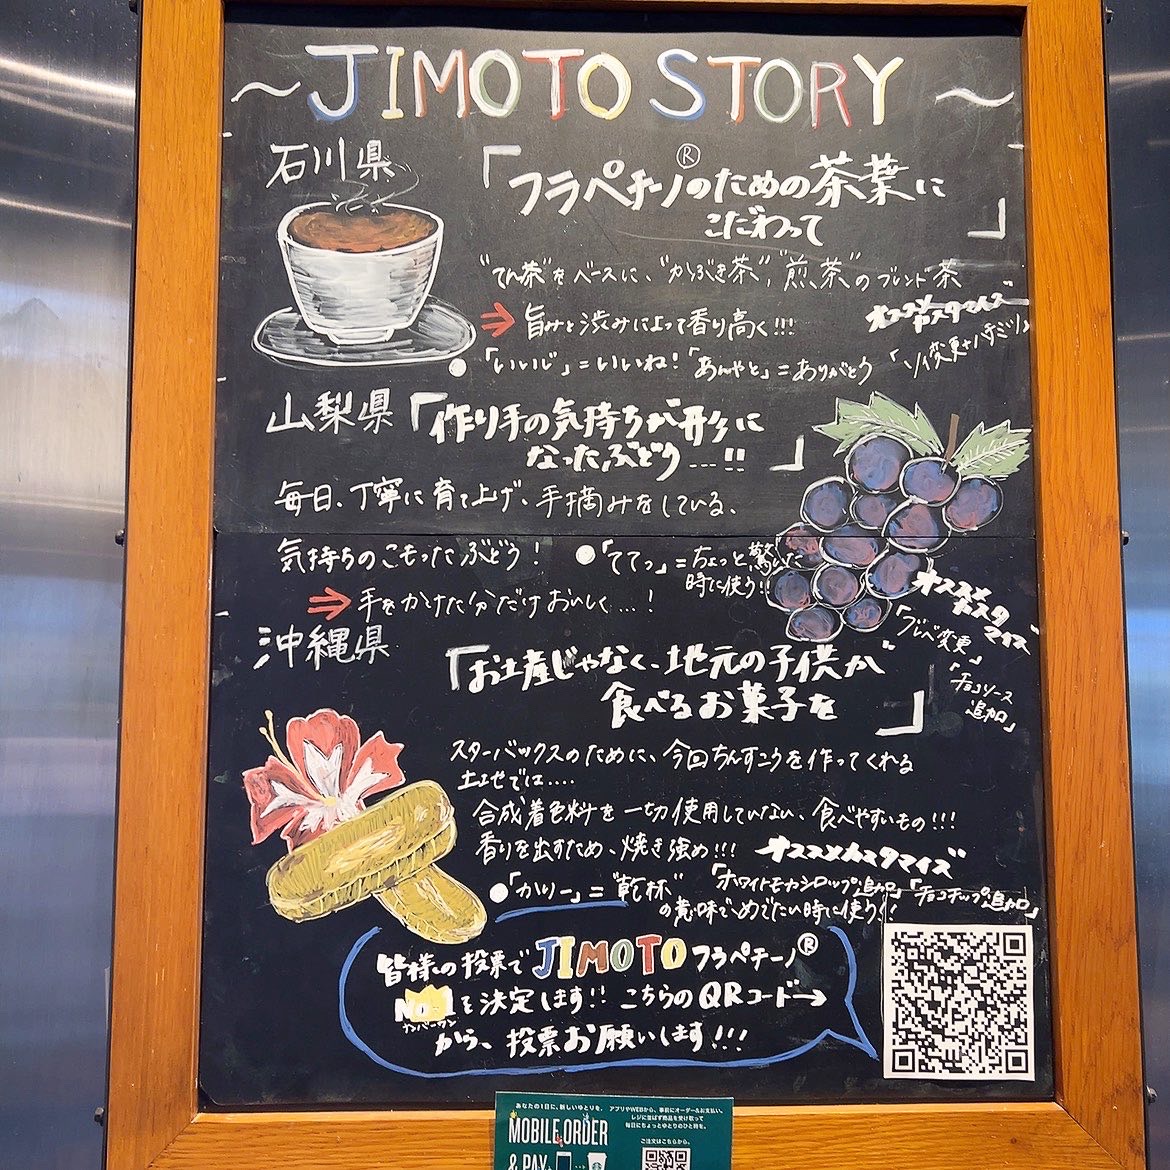 ～JIMOTO STORY～
石川県
「フラペチーノ®のための茶葉に
こだわって」
"てん茶"をベースに、"かぶき茶"、"煎茶"のブレンド茶
⇒旨みと渋みによって香り高く!!!
オススメ
カスタマイズ
●「いいじ」=いいね!「あんやと」=ありがとう
「ソイ変更+ハチミツ」
山梨県
「作り手の気持ちが形に
なったぶどう…!!」
毎日、丁寧に育て上げ、手摘みをしている、
気持ちのこもったぶどう!
●「ててっ」=ちょっと驚いた
時に使う!!
⇒手をかけた分だけおいしく…!
オススメ
カスタ
マイズ
「ブレベ変更」
「チョコソース
追加」
沖縄県
「お土産じゃなく、地元の子供が
食べるお菓子を」
スターバックスのために、今回ちんすこうを作ってくれる
土地では‥‥
合成着色料を一切使用していない、食べやすいもの!!!
香りを出すため、焼き強め!!!
オススメカスタマイズ
「ホワイトモカシロップ追加」「チョコチップ追加」
●「かりー」="乾杯"
の意味で、めでたい時に使う!!
皆様の投票でJIMOTOフラペチーノ®
No.1を決定します!!こちらのQRコード→
ナンバーワン
から、投票お願いします!!!
あなたの1日に、新しいゆとりを。
MOBILE ORDER
& PAY
アプリやWEBから、事前にオーダー&お支払い。
レジに並ばず商品を受け取って
毎日にちょっとゆとりのひと時を。
ご注文はこちらから。